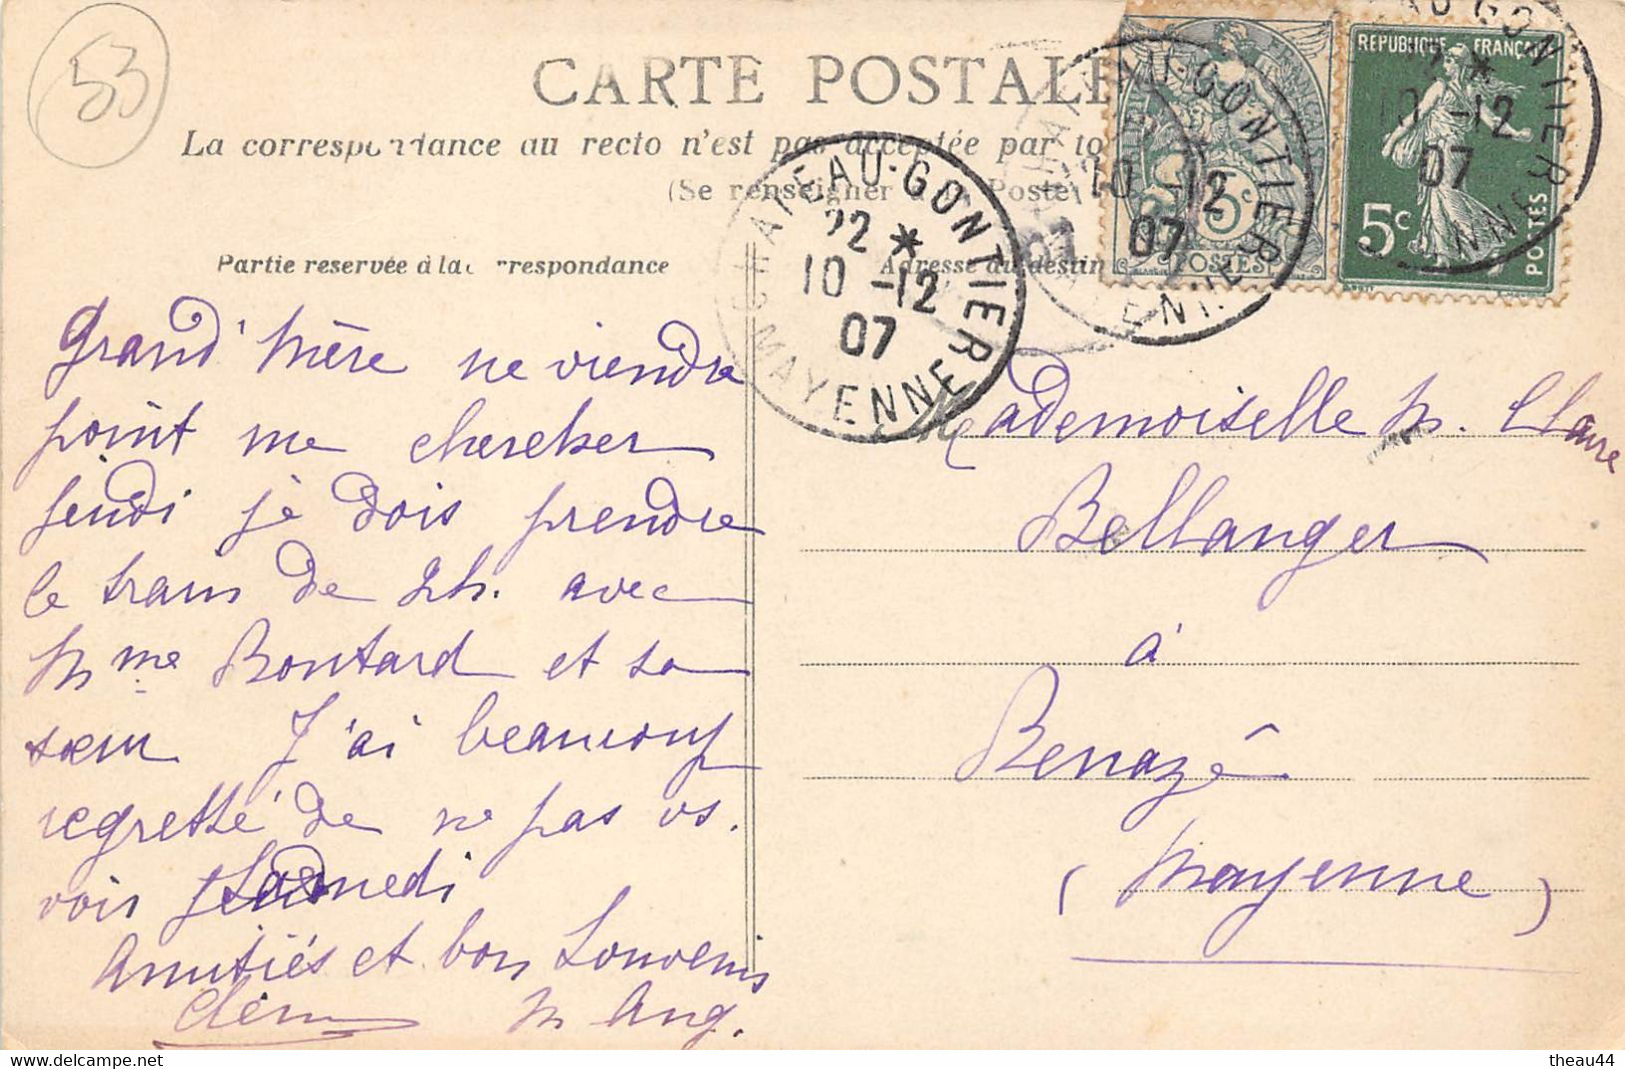 53
CARTE POSTALE
La correspondance au recto n'est pas acceptée par to
(Se renseigner à la Poste)
Partie reservée à la correspondance
Adresse du destin
CHATEAU-GONTIER
22 *
10 -12
07
MAYENNE
CHATEAU-GONTIER
10 -12
07
MAYENNE
5c
POSTES
REPUBLIQUE FRANÇAISE
5c
POSTES
EAU-GONTIER
12 *
10 -12
07
Grand'Mère ne viendra
point me chercher
jeudi je dois prendre
le train de 2h. avec
Mme Boutard et sa
sœur J'ai beaucoup
regretté de ne pas vs.
voir Samedi
Amitiés et bon Souvenir
Clém M Ang.
Mademoiselle M. Claire
Bellanger
à
Renazé
(Mayenne)
theau44